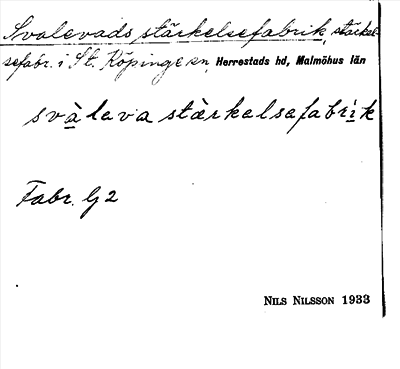 Svalevads stärkelsefabrik, stärkel
sefabr. i St. Köpinge sn, Herrestads hd, Malmöhus län
svàleva stärkelsefabrìk
Fabr. G 2
NILS NILSSON 1933